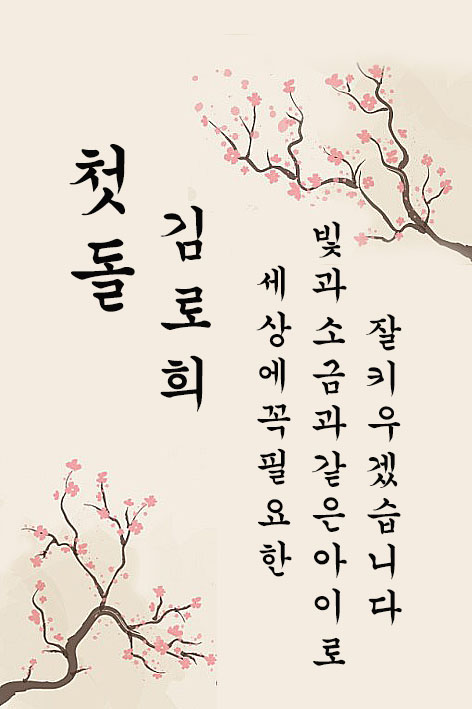 첫돌
김로희
세상에꼭필요한
빛과소금과같은아이로
잘키우겠습니다